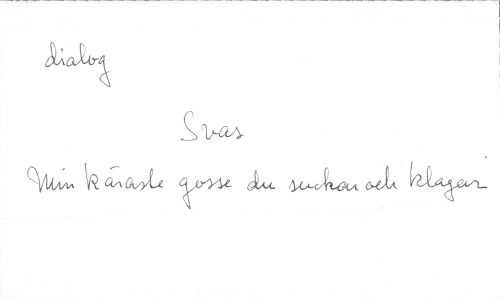 dialog
Svas
Min käraste gosse du suckar och klagar